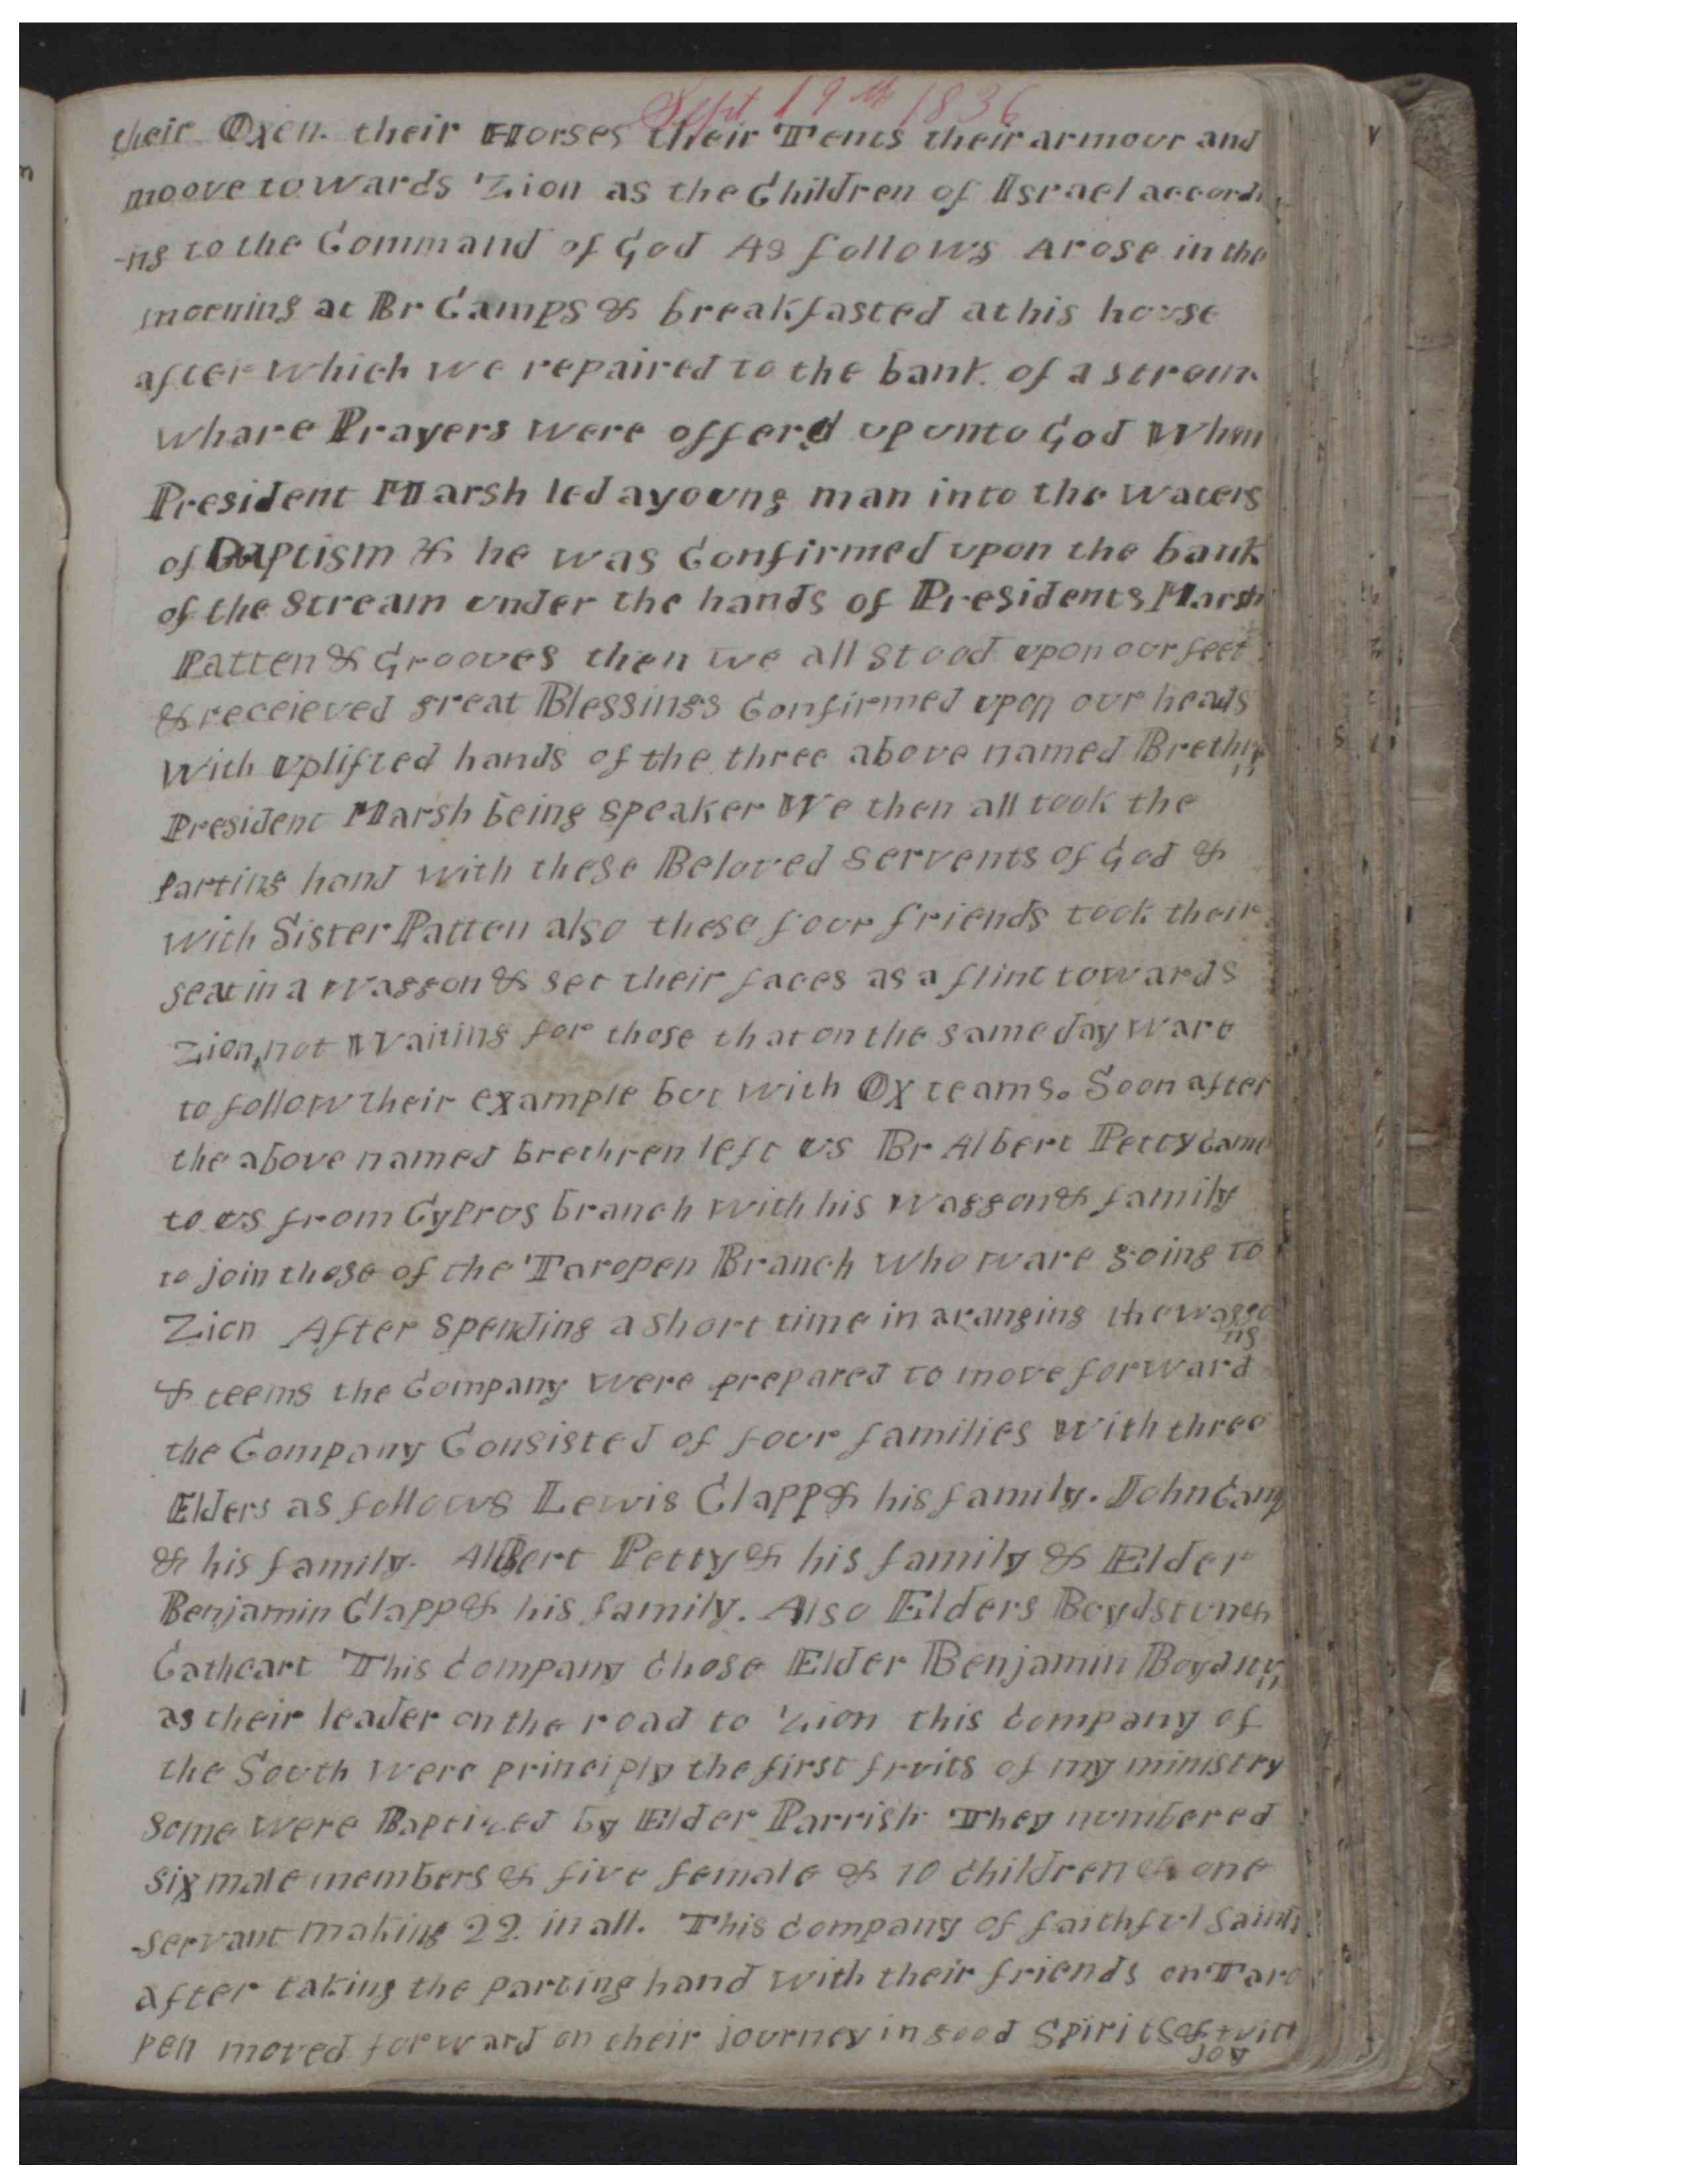 Sept 19th 1836
their Oxen. their Horses their Tents their armour and
moove towards Zion as the Children of Israel accordi
-ng to the Command of God As follows Arose in the
morning at Br Camps & breakfasted at his house
after which we repaired to the bank of a stream
whare Prayers were offerd up unto God When
President Marsh led a young man into the waters
of Baptism & he was Confirmed upon the bank
of the Stream under the hands of Presidents Marsh
Patten & Grooves then we all stood upon our feet
& receieved great Blessings Confirmed upon our heads
with uplifted hands of the three above named Brethren
President Marsh being speaker We then all took the
parting hand with these Beloved Servents of God &
with Sister Patten also these four friends took their
seat in a waggon & set their faces as a flint towards
Zion, not Waiting for those that on the same day ware
to follow their example but with Ox teams. Soon after
the above named brethren left us Br Albert Petty came
to us from Cyprus branch with his waggon & family
to join those of the Taropen Branch who ware going to
Zion After spending a short time in aranging the waggons
& teems the Company were prepared to move forward
the Company Consisted of four families with three
Elders as follows Lewis Clapp & his family. John Camp
& his family. Albert Petty & his family & Elder
Benjamin Clapp & his family. Also Elders Boydstun &
Cathcart This company chose Elder Benjamin Boydstun
as their leader on the road to Zion this company of
the South were principly the first fruits of my ministry
some were Baptized by Elder Parrish They numbered
six male members & five female & 10 children & one
servant making 22 in all. This company of faithful Saints
after taking the parting hand with their friends on Taro
pen moved forward on their journey in good Spirits &